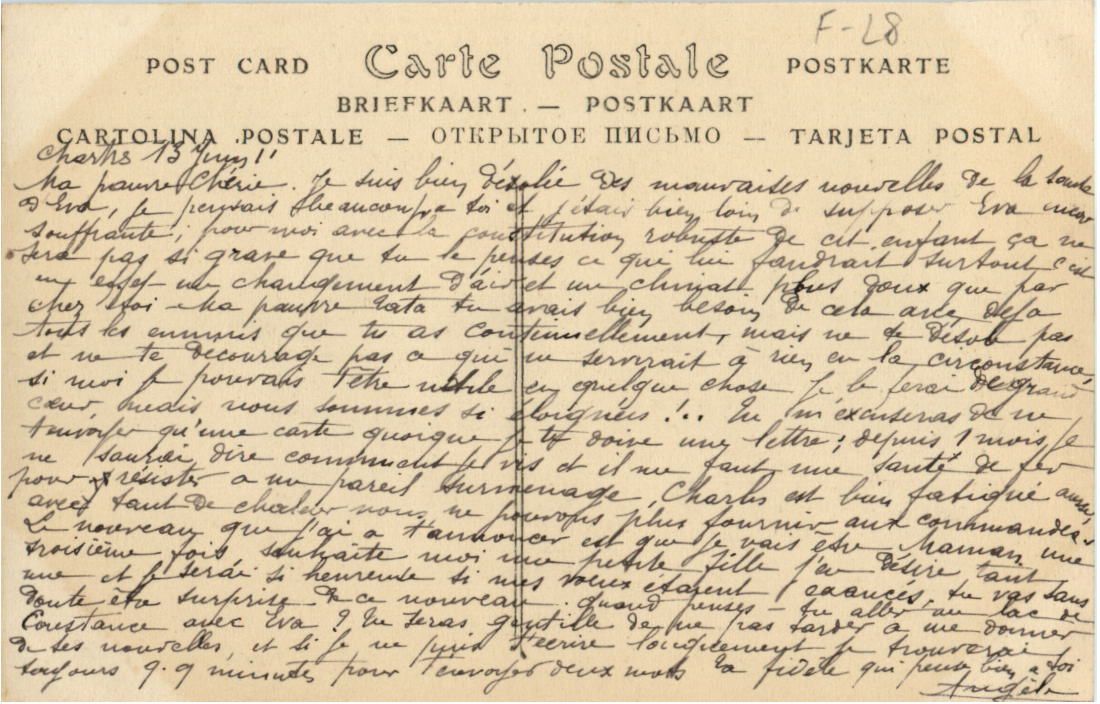 F-28
POST CARD Carte Postale POSTKARTE
BRIEFKAART. — POSTKAART
CARTOLINA POSTALE — ОТКРЫТОЕ ПИСЬМО — TARJETA POSTAL
13 Juin 11
Ma pauvre Chérie. Je suis bien désolée des mauvaises nouvelles de la santé
d'Eva, je pensais beaucoup à toi et j'étais bien loin de supposer Eva
souffrante; pour moi avec la constitution robuste de cet enfant ça ne
sera pas si grave que tu le penses ce qui lui faudrait surtout c'est
en effet un changement d'air et un climat plus doux que par
chez toi Ma pauvre tu avais bien besoin de cela avec déjà
tous les ennuis que tu as continuellement, mais ne te désole pas
et ne te décourage pas ce qui ne servirait à rien en la circonstance,
si moi je pouvais t'être utile en quelque chose je le ferai de grand
cœur, mais nous sommes si éloignées !.. Tu m'excuseras de ne
t'envoyer qu'une carte quoique je te doive une lettre; depuis 1 mois je
ne saurai dire comment je vis et il me faut une santé de fer
pour résister a un pareil surmenage, Charles est bien fatigué aussi,
avec tant de chaleur nous ne pouvons plus fournir aux commandes.
Le nouveau que j'ai a t'annoncer est que je vais être Maman une
troisième fois souhaite moi une petite fille j'en désire tant
une et je serai si heureuse si mes vœux étaient exaucés. tu vas sans
doute être surprise de ce nouveau. Quand penses-tu aller au lac de
Constance avec Eva ? Tu seras gentille de ne pas tarder a me donner
de ses nouvelles, et si je ne puis t'écrire longuement je trouverai
toujours q.q minutes pour t'envoyer deux mots Ta fidèle qui pense bien a toi
Angèle